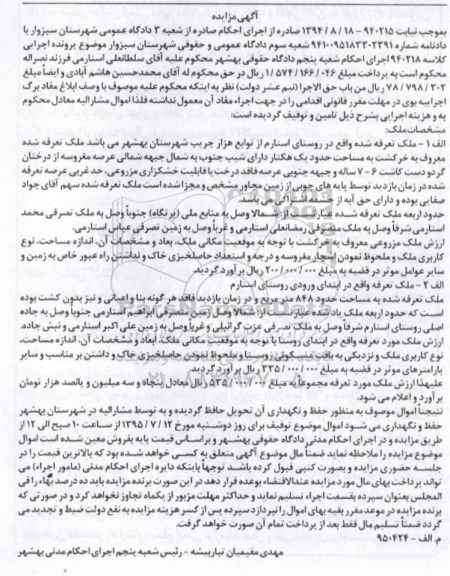 آگهی مزایده
بموجب نیابت ۹۴۰۲۱۵ - ۱۸ / ۸ / ۱۳۹۴ صادره از اجرای احکام صادره از شعبه ۳ دادگاه عمومی شهرستان سبزوار با
دادنامه شماره ۹۴۱۰۰۹۵۱۸۳۳۰۲۳۹۱ شعبه سوم دادگاه عمومی و حقوقی شهرستان سبزوار موضوع پرونده اجرایی
کلاسه ۹۴۰۲۱۸ اجرای احکام شعبه پنجم دادگاه حقوقی بهشهر محکوم علیه آقای سلطانعلی استارمی فرزند نصراله
محکوم است به پرداخت مبلغ ۰۴۶ / ۱۶۶ / ۵۷۴ / ۱ ریال در حق محکوم له آقای محمدحسین هاشم آبادی و ایضاً مبلغ
۳۰۲ / ۷۹۸ / ۷۸ ریال من باب حق الاجرا (نیم عشر دولت) نظر به اینکه محکوم علیه موصوف با وصف ابلاغ مفاد برگ
اجراییه بوی در مهلت مقرر قانونی اقدامی را در جهت اجراء مفاد آن معمول نداشته فلذا اموال مشارالیه معادل محکوم
به و هزینه اجرایی بشرح ذیل تامین و توقیف گردیده است:
مشخصات ملک:
الف ۱ - ملک تعرفه شده واقع در روستای استارم از توابع هزار جریب شهرستان بهشهر می باشد ملک تعرفه شده
معروف به خرکشت به مساحت حدود یک هکتار دارای شیب جنوب به شمال جبهه شمالی عرصه مغروسه از درختان
گردو دست کاشت ۶ - ۷ ساله و جبهه جنوبی عرصه فاقد درخت با قابلیت خشکزاری مزروعی، حد غربی عرصه تعرفه
شده در زمان بازدید توسط پایه های چوبی از زمین مجاور مشخص و مجزا شده است ملک تعرفه شده سهم آقای جواد
صفایی بوده و دارای حق آبه از چشمه اشتراکی می باشد.
حدود اربعه ملک تعرفه شده عبارت است از شمالا وصل به منابع ملی (پرتگاه) جنوباً وصل به ملک تصرفی محمد
استارمی شرقاً وصل به ملک متصرفی رمضانعلی استارمی و غرباً وصل به زمین تصرفی عباس استارمی.
ارزش ملک مزروعی معروف به خرکشت با توجه به موقعیت مکانی ملک، ابعاد و مشخصات آن، اندازه مساحت، نوع
کاربری ملک و ملحوظ نمودن اشجار مغروسه و درجه و استعداد حاصلخیزی خاک و نداشتن راه عبور خاص به زمین و
سایر عوامل موثر در قضیه به مبلغ ۰۰۰ / ۰۰۰ / ۲۰۰ ریال برآورد گردید.
الف ۲ - ملک تعرفه واقع در ابتدای ورودی روستای استارم
ملک تعرفه شده به مساحت حدود ۸۴۸ متر مربع و در زمان بازدید فاقد هر گونه بنا و اعیانی و نیز بدون کشت بوده
است که حدود اربعه ملک یاد شده عبارت است از شمالا وصل به زمین متصرفی ابراهیم استارمی جنوباً وصل به جاده
اصلی روستای استارم شرقاً وصل به ملک تصرفی عزت گرائیلی و غرباً وصل به زمین علی اکبر استارمی و نبش جاده.
ارزش ملک مورد تعرفه واقع در ابتدای روستا با توجه به موقعیت مکانی ملک، ابعاد و مشخصات آن، اندازه مساحت،
نوع کاربری ملک و نزدیکی به بافت مسکونی روستا و ملحوظ نمودن حاصلخیزی خاک و داشتن بر مناسب و سایر
پارامترهای موثر در قضیه به مبلغ ۰۰۰ / ۰۰۰ / ۳۳۵ ریال برآورد گردید.
علیهذا ارزش ملک مورد تعرفه مجموعاً به مبلغ ۰۰۰ / ۰۰۰ / ۵۳۵ ریال معادل پنجاه و سه میلیون و پانصد هزار تومان
برآورد و اعلام می شود.
نتیجتاً اموال موصوف به منظور حفظ و نگهداری آن تحویل حافظ گردیده و به توسط مشارالیه در شهرستان بهشهر
حفظ و نگهداری می شود اموال موضوع توقیف برای روز دوشنبه مورخ ۱۲ / ۷ / ۱۳۹۵ از ساعت ۱۰ صبح الی ۱۲ از
طریق مزایده و در اجرای احکام مدنی دادگاه حقوقی بهشهر و براساس قیمت پایه بفروش معین شده است اموال
موضوع مزایده را ملاحظه نماید ضمناً مال موضوع آگهی متعلق به کسی خواهد شده بود که بالاترین قیمت را در
جلسه حضوری مزایده و بصورت کتبی قبول کرده باشد توجهاً باینکه دایره اجرای احکام مدنی (مامور اجراء) می
تواند پرداخت بهای مال مورد مزایده عندالاقتضاء بوعده قرار دهد در این صورت برنده مزایده باید ده درصد بهاء را فی
المجلس بعنوان سپرده بقسمت اجراء تسلیم نماید و حداکثر مهلت مزبور از یکماه تجاوز نخواهد کرد و در صورتی که
برنده مزایده در موعد مقرر بقیه بهای اموال را نپردازد سپرده پس از کسر هزینه مزایده به نفع دولت ضبط و تجدید می
گردد ضمناً تسلیم مال فقط بعد از پرداخت تمام آن صورت خواهد گرفت.
م. الف - ۹۵۰۴۲۴
مهدی مقیمیان نباربیشه - رئیس شعبه پنجم اجرای احکام مدنی بهشهر